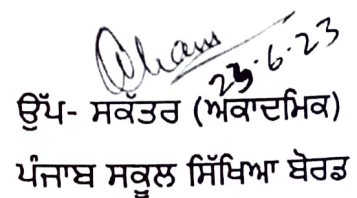 23.6.23
ਉੱਪ- ਸਕੱਤਰ (ਅਕਾਦਮਿਕ)
ਪੰਜਾਬ ਸਕੂਲ ਸਿੱਖਿਆ ਬੋਰਡ